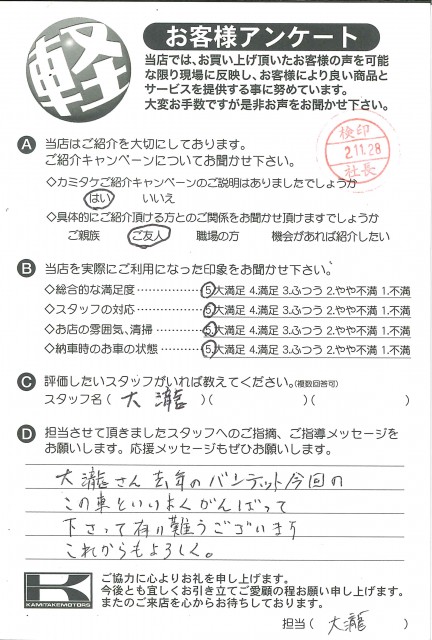 軽
お客様アンケート
当店では、お買い上げ頂いたお客様の声を可能
な限り現場に反映し、お客様により良い商品と
サービスを提供する事に努めています。
大変お手数ですが是非お声をお聞かせ下さい。
A 当店はご紹介を大切にしております。
ご紹介キャンペーンについてお聞かせ下さい。
検印
2.11.28
社長
◇カミタケご紹介キャンペーンのご説明はありましたでしょうか
はい いいえ
◇具体的にご紹介頂ける方とのご関係をお聞かせ頂けますでしょうか
ご親族 ご友人 職場の方 機会があれば紹介したい
B 当店を実際にご利用になった印象をお聞かせ下さい。
◇総合的な満足度 ………… 5.大満足 4.満足 3.ふつう 2.やや不満 1.不満
◇スタッフの対応 ………… 5.大満足 4.満足 3.ふつう 2.やや不満 1.不満
◇お店の雰囲気、清掃 ……… 5.大満足 4.満足 3.ふつう 2.やや不満 1.不満
◇納車時のお車の状態 ……… 5.大満足 4.満足 3.ふつう 2.やや不満 1.不満
C 評価したいスタッフがいれば教えてください。(複数回答可)
スタッフ名 ( 大瀧 )( )( )
D 担当させて頂きましたスタッフへのご指摘、ご指導メッセージを
お願いします。応援メッセージもぜひお願いします。
大瀧さん去年のバンテット今回の
この車といいよくがんばって
下さって有り難うございます
これからもよろしく。
K
KAMITAKEMOTORS
ご協力に心よりお礼を申し上げます。
今後とも宜しくお引き立てご愛顧の程お願い申し上げます。
またのご来店を心からお待ちしております。
担当 ( 大瀧 )